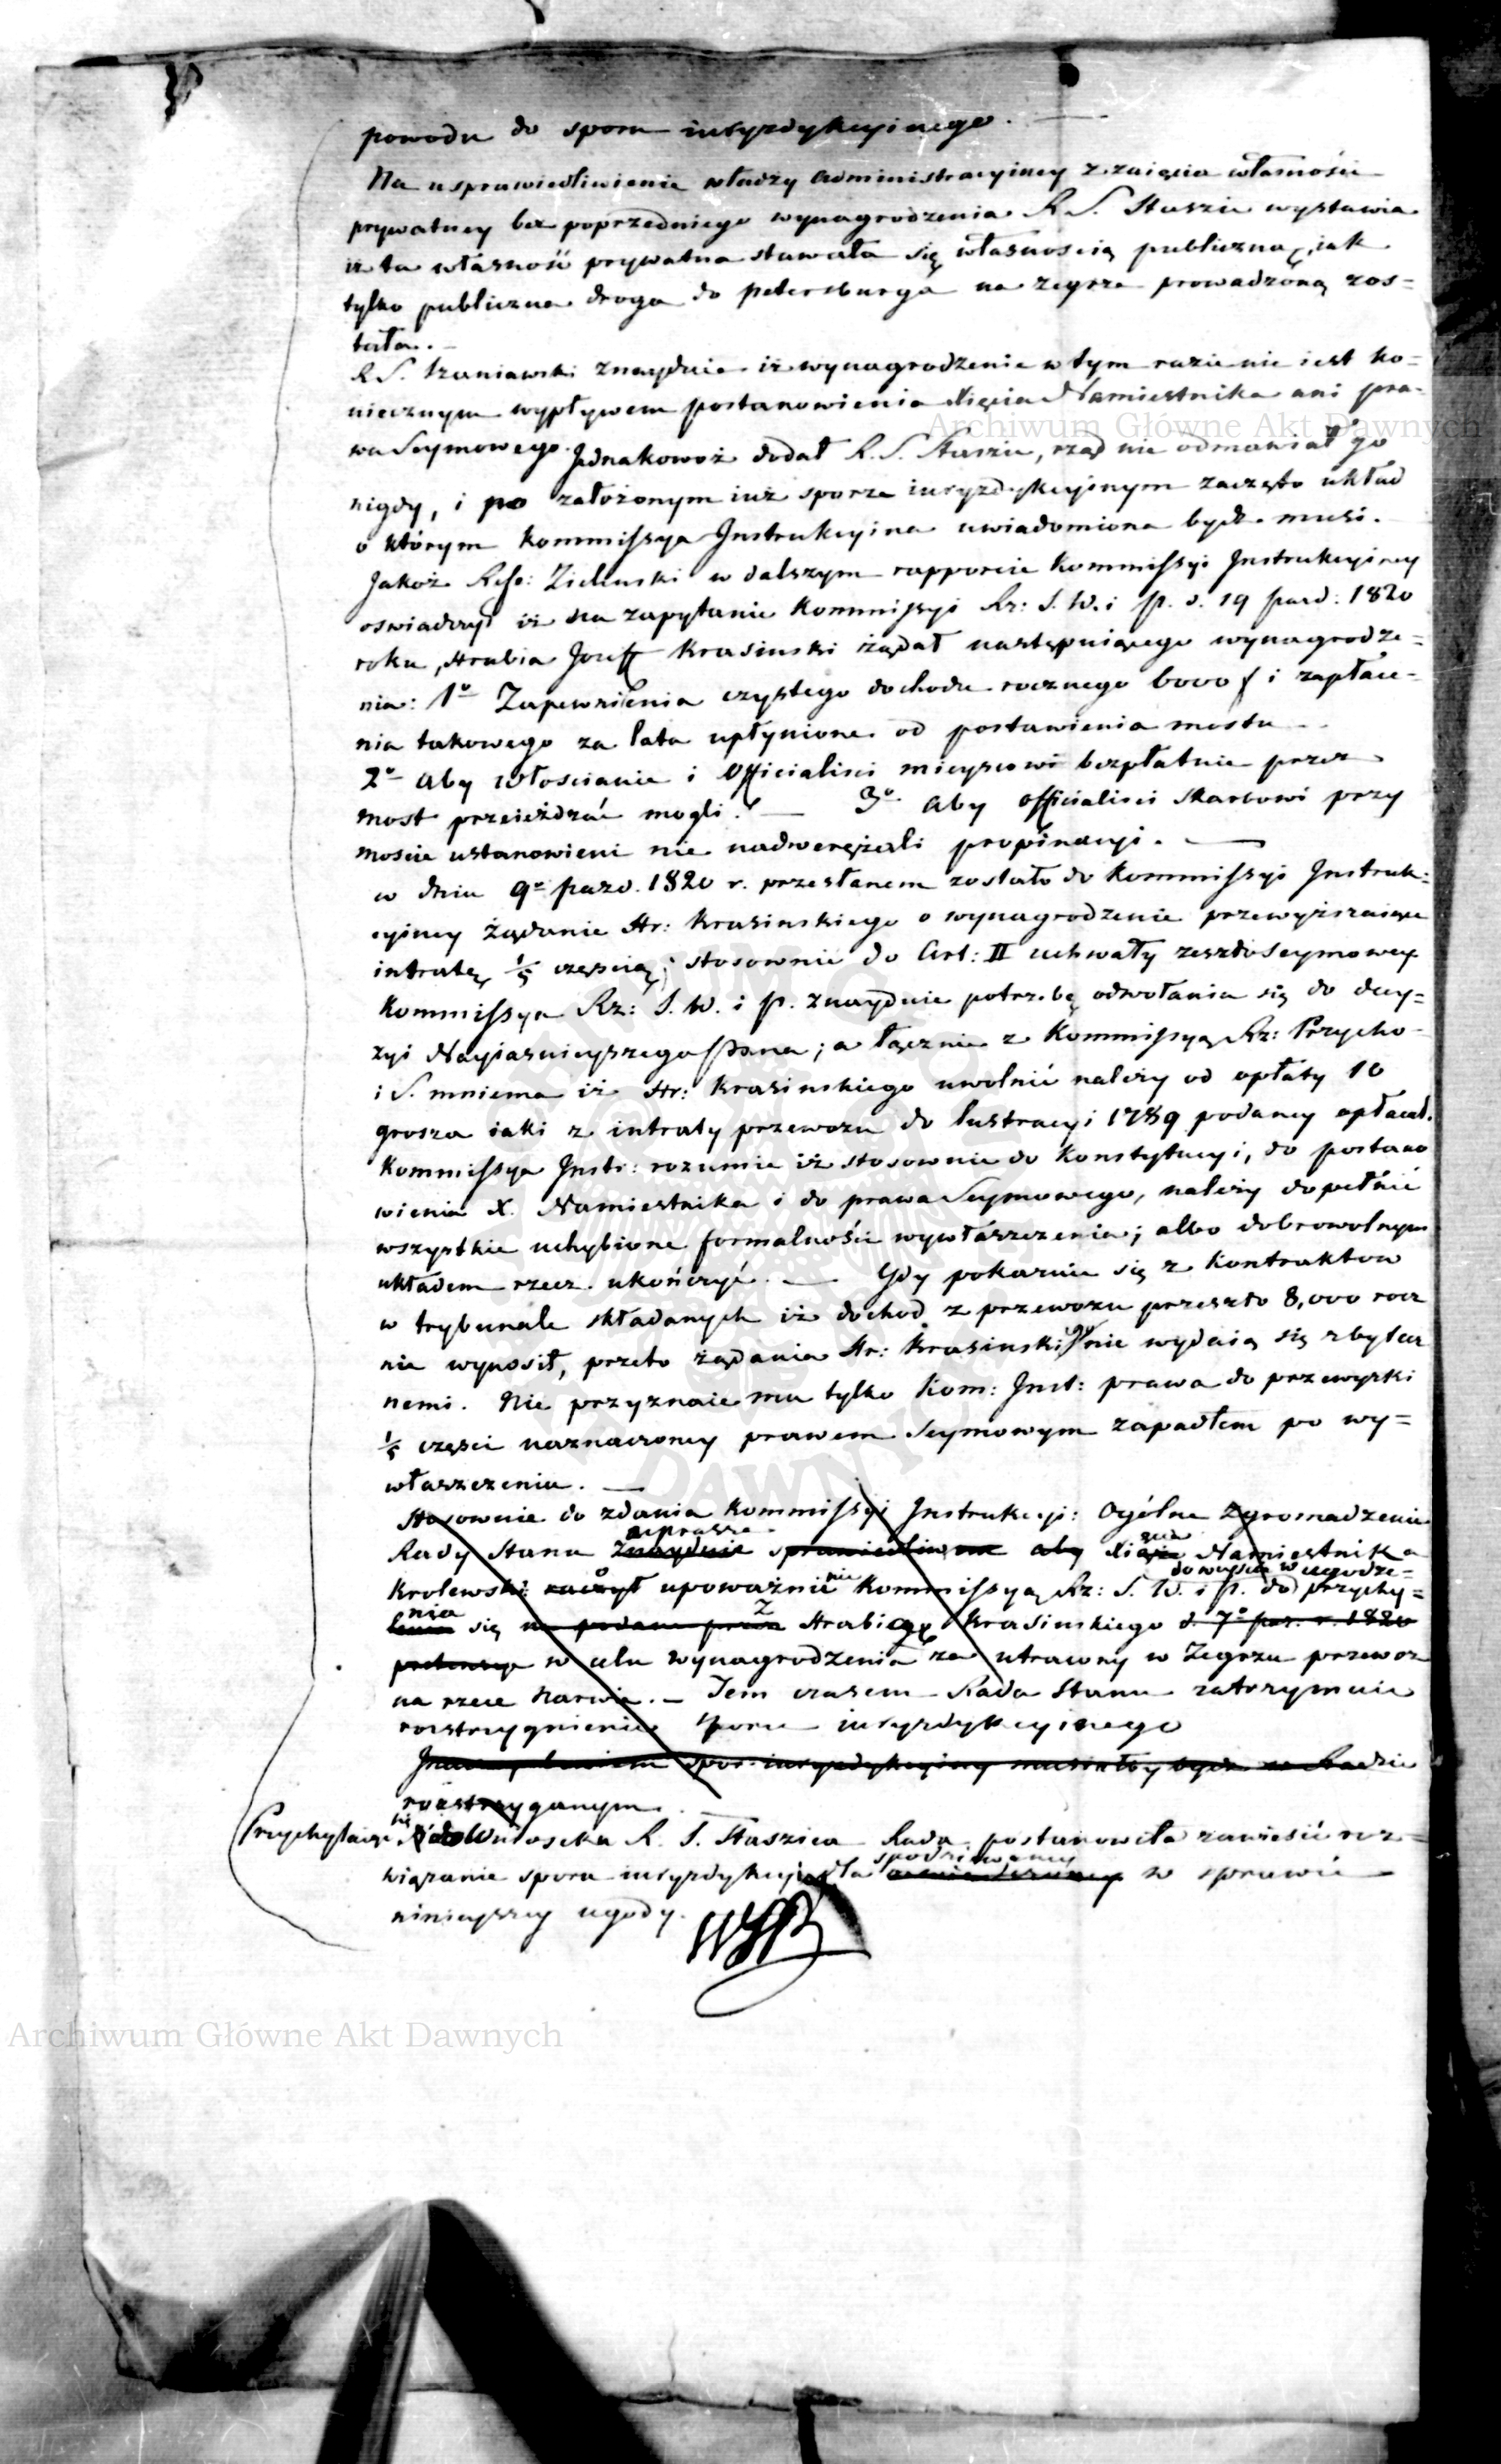 powodu do sporu iuryzdykcyinego.
Na usprawiedliwienie władzy administracyiney z zaięcia własności
prywatney bez poprzedniego wynagrodzenia R. S. Staszic wystawia
iż ta własność prywatna stawała się własnością publiczną, iak
tylko publiczna droga do Petersburga na Zegrze prowadzoną zos=
tała.
R S. Szaniawski znayduie iż wynagrodzenie w tym razie nie iest ko=
niecznym wypływem postanowienia Xięcia Namiestnika ani pra-
wa Seymowego. Jednakowoż dodał R. S. Staszic, rząd nie odmawiał go
nigdy, i po założonym iuż sporze iuryzdykcyinym zaczęto układ
o którym Kommissya Instrukcyina uwiadomiona bydź musi.
Jakoż Refe: Zieliński w dalszym rapporcie Kommissyi Instrukcyiney
oświadczył iż na zapytanie Kommissyi Rz: S. W. i P. d. 19 paźd: 1820
roku, Hrabia Josef Krasinski żądał następuiącego wynagrodze=
nia: 1o Zapewnienia czystego dochodu rocznego 6000 f i zapłace-
nia takowego za lata upłynione od postawienia mostu
2o aby włoscianie i Officialisci mieyscowi bezpłatnie przez
most przeieżdzać mogli. 3o aby officialisci skarbowi przy
moscie ustanowieni nie nadwerężali propinacyi.
w dniu 9o pazd. 1820 r. przesłanem zostało do Kommissyi Instruk=
cyiney żądanie Hr: Krasinskiego o wynagrodzenie przewyższaiące
intratę 1/5 częścią; stosownie do Art: II uchwały zeszłoseymowey
Kommissya Rz: S. W. i P. znayduie potrzebę odwołania się do decy=
zyi Nayiasnieyszego Pana; a łącznie z Kommissyą Rz: Przycho-
i S. mniema iż Hr: Krasinskiego uwolnić należy od opłaty 10
grosza iaki z intraty przewozu do lustracyi 1789 podaney opłacał.
Kommissya Instr: rozumie iż stosownie do Konstytucyi, do postano
wienia X. Namiestnika i do prawa Seymowego, należy dopełnić
wszystkie uchybione formalności wywłaszczenia; albo dobrowolnym
układem rzecz ukończyć. Gdy pokazuie się z Kontraktow
w trybunale składanych iż dochod z przewozu przeszło 8,000 rocz
nie wynosił, przeto żądania Hr: Krasinskiego nie wydaią się zbytecz
nemi. Nie przyznaie mu tylko Kom: Inst: prawa do przewyżki
1/5 części naznaczoney prawem Seymowym zapadłem po wy=
właszczeniu.
Stosownie do zdania Kommissyi Instrukcyi: Ogólne Zgromadzenie
uprasza
Rady Stanu znayduie sprawiedliwem aby Xiąże Namiestnik a
do weyscia w ugodze=
Krolewski raczył upoważnić Kommissyą Rz: S. W. i P. do przychy=
nia z
lenia się na podane przez Hrabiego Krasinskiego d. 7o paz. r. 1820
pretensye w celu wynagrodzenia za utracony w Zegrzu przewoz
na rzece Narwie. Tem czasem Rada Stanu zatrzymuie
rozstrzygnienie sporu iuryzdykcyinego
spor iuryzdykcyiny musiałby bydz w Radzie
rozstrzyganym.
Przychylaiąc się do Wniosku R. S. Staszica Rada postanowiła zawiesić roz=
spodziewaney
wiązanie sporu iuryzdykcyi dla w sprawie
ninieyszey ugody.